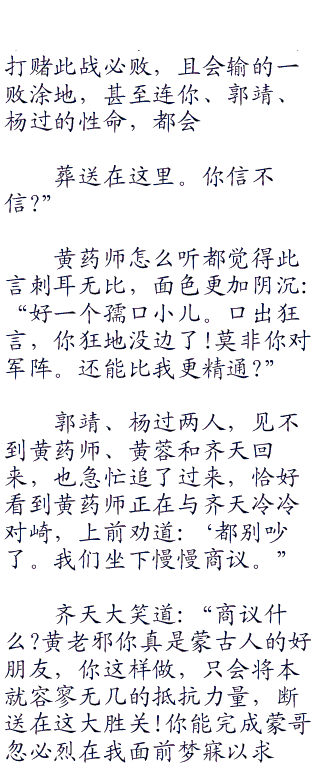 打赌此战必败，且会输的一
败涂地，甚至连你、郭靖、
杨过的性命，都会
葬送在这里。你信不
信?”
黄药师怎么听都觉得此
言刺耳无比，面色更加阴沉:
“好一个孺口小儿。口出狂
言，你狂地没边了!莫非你对
军阵。还能比我更精通?”
郭靖、杨过两人，见不
到黄药师、黄蓉和齐天回
来，也急忙追了过来，恰好
看到黄药师正在与齐天冷冷
对崎，上前劝道:‘都别吵
了。我们坐下慢慢商议。”
齐天大笑道:“商议什
么?黄老邪你真是蒙古人的好
朋友，你这样做，只会将本
就容寥无几的抵抗力量，断
送在这大胜关!你能完成蒙哥
忽必烈在我面前梦寐以求